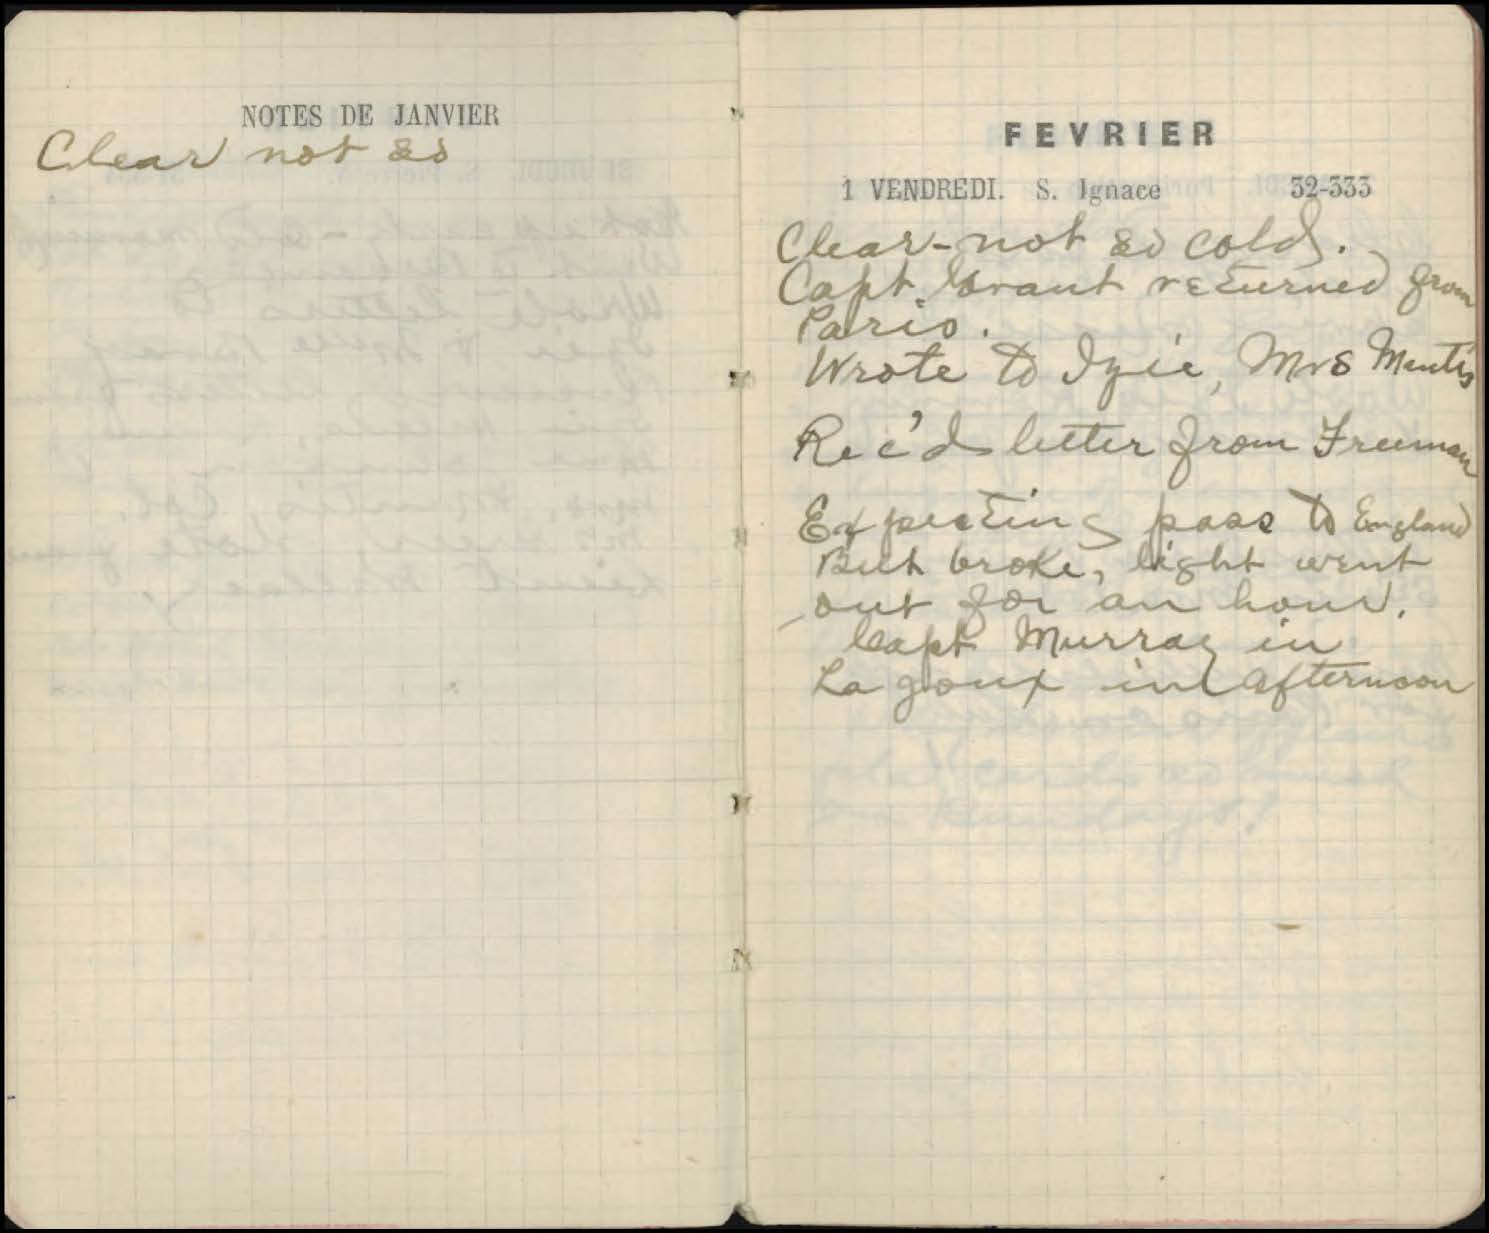 NOTES DE JANVIER
Clear not so
FEVRIER
1 VENDREDI. S. Ignace 32-333
Clear - not so cold.
Capt. Grant returned from
Paris.
Wrote to Izie, Mrs Mentis
Rec'd letter from Freeman
Expecting pass to England
Belt broke, light went
out for an hour.
Capt Murray in
La joux in afternoon